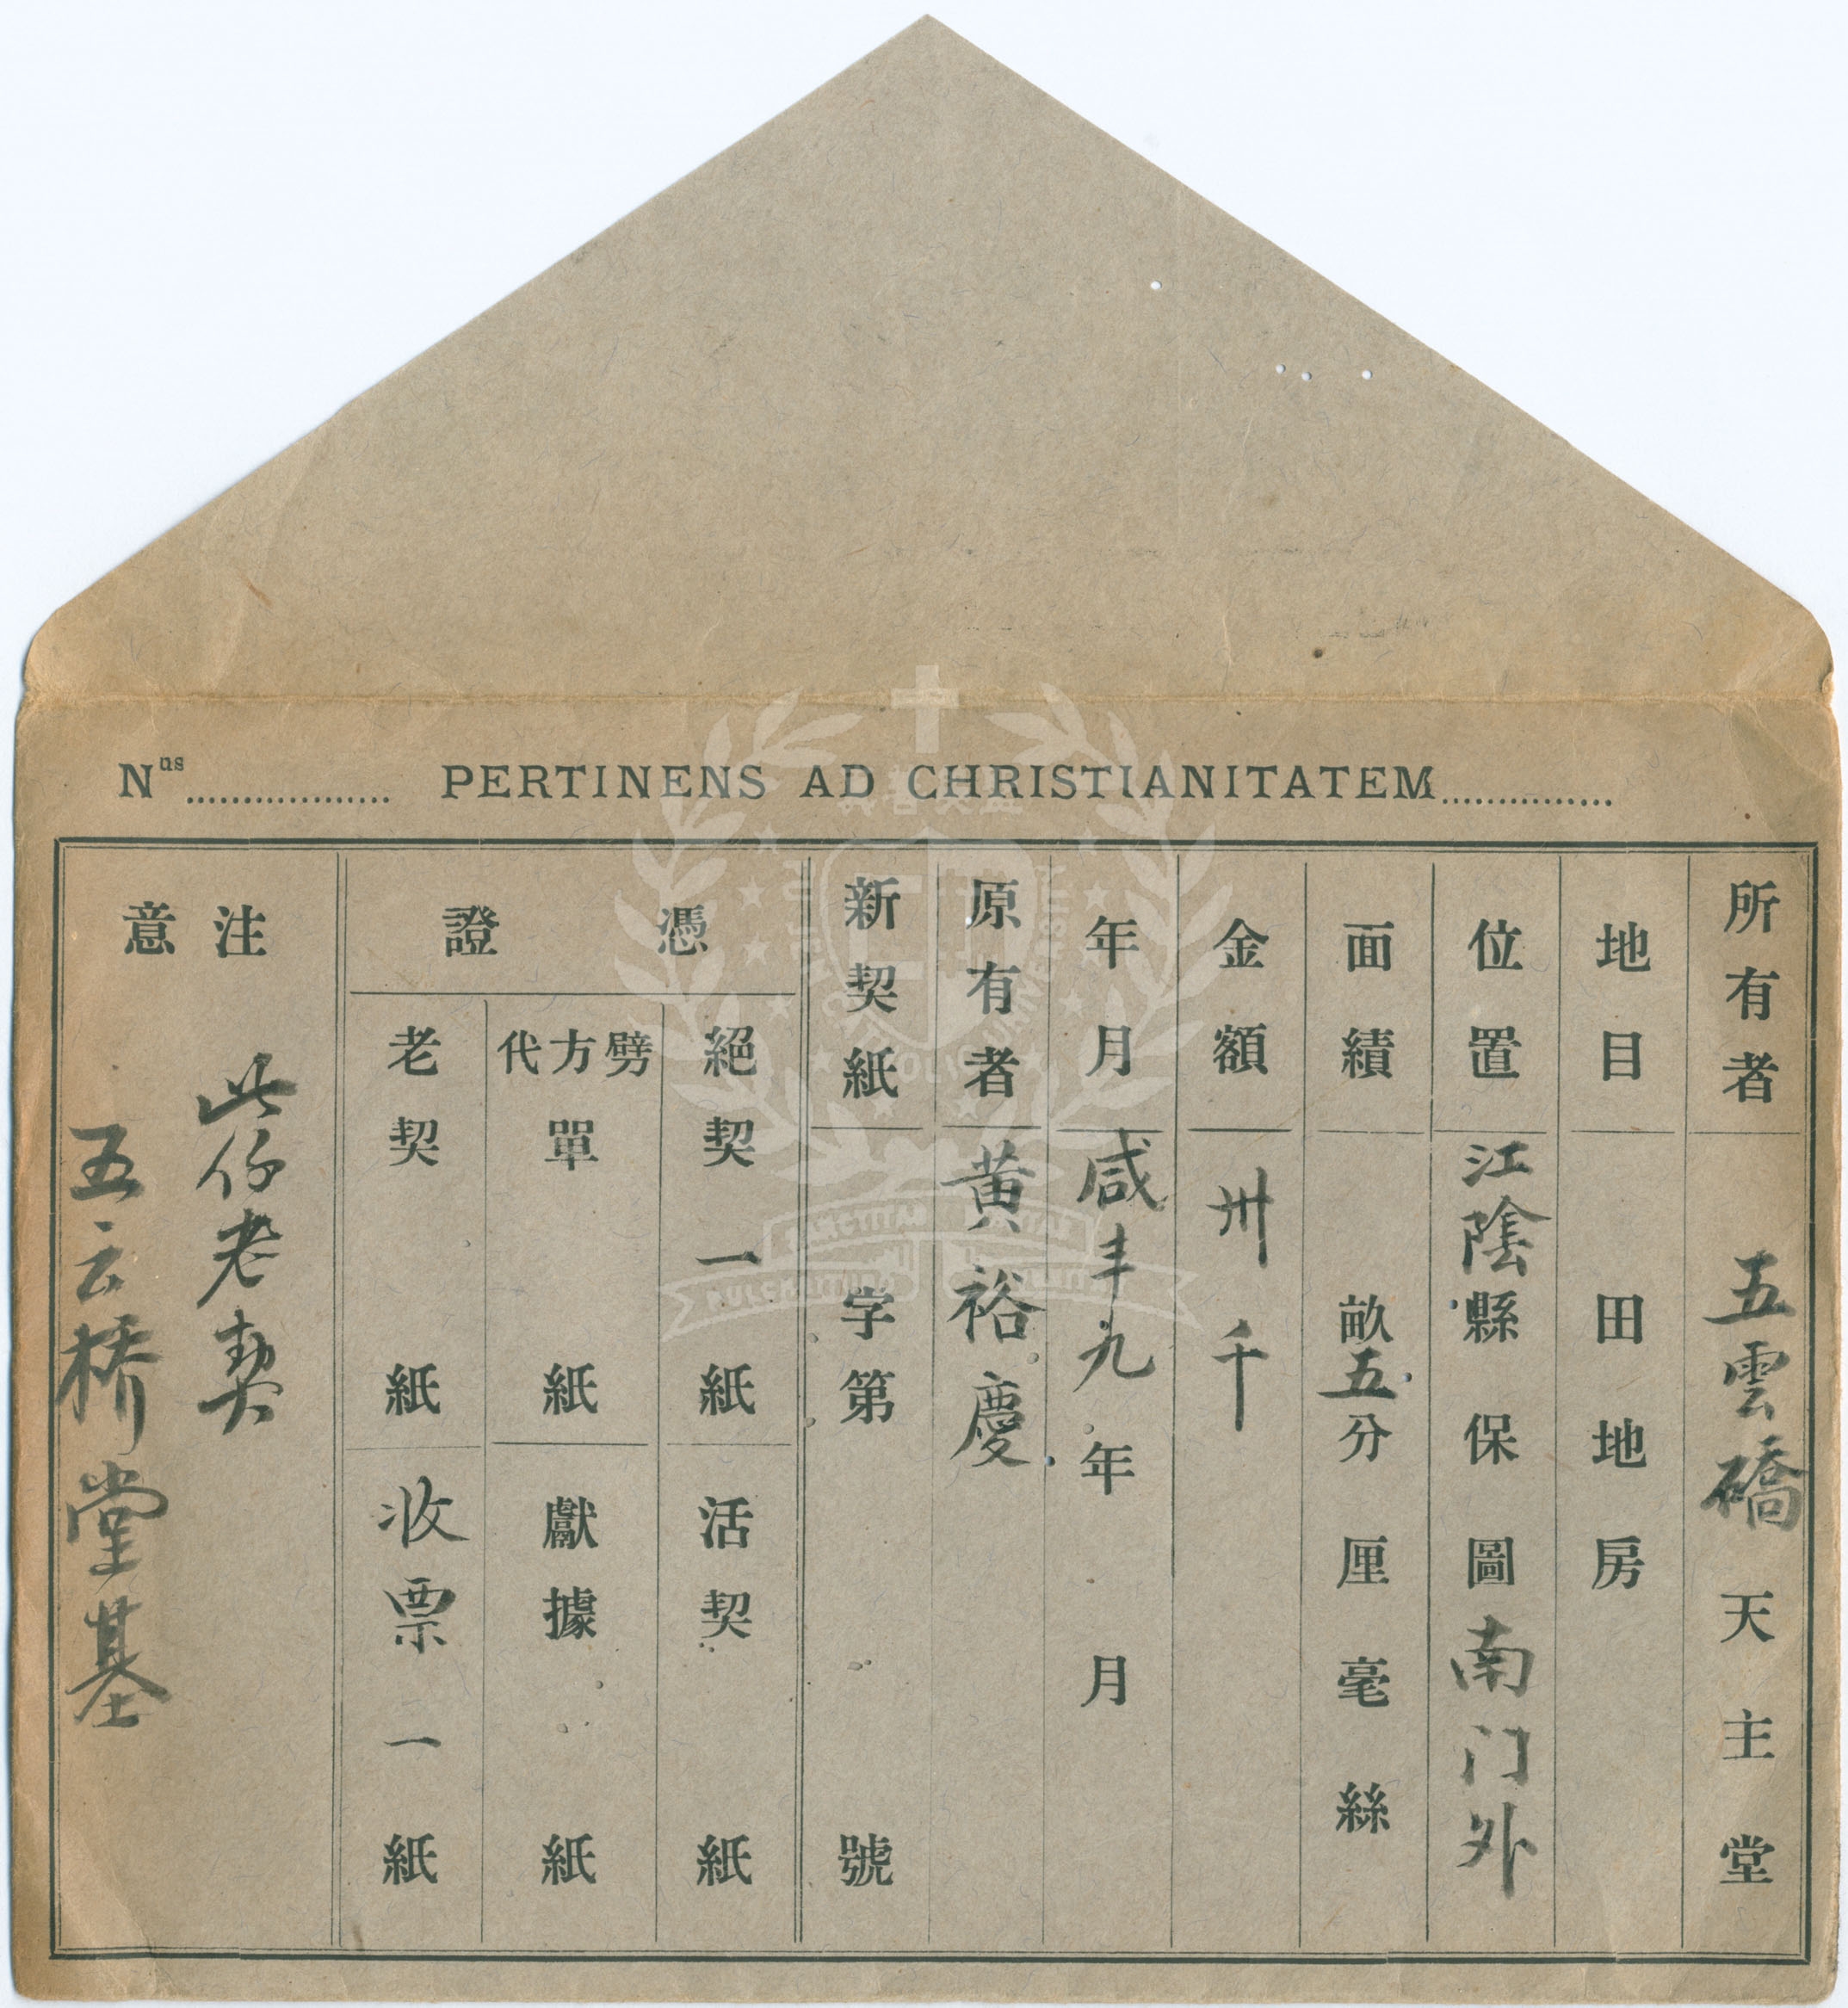 Nus.................. PERTINENS AD CHRISTIANITATEM...............
所有者 五雲礄天主堂
地目 田地房
位置 江陰縣保圖南门外
面績 畝五分厘毫絲
金額 卅千
年月 咸丰九年月
原有者 黄裕慶
新契紙字第號
憑證
絕契一紙
活契紙
劈方代單紙
獻據紙
老契紙
收票一紙
注意
此仔老契
五云桥堂基